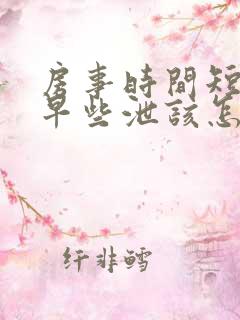 房事時間短
早些泄該怎
纤非鳕